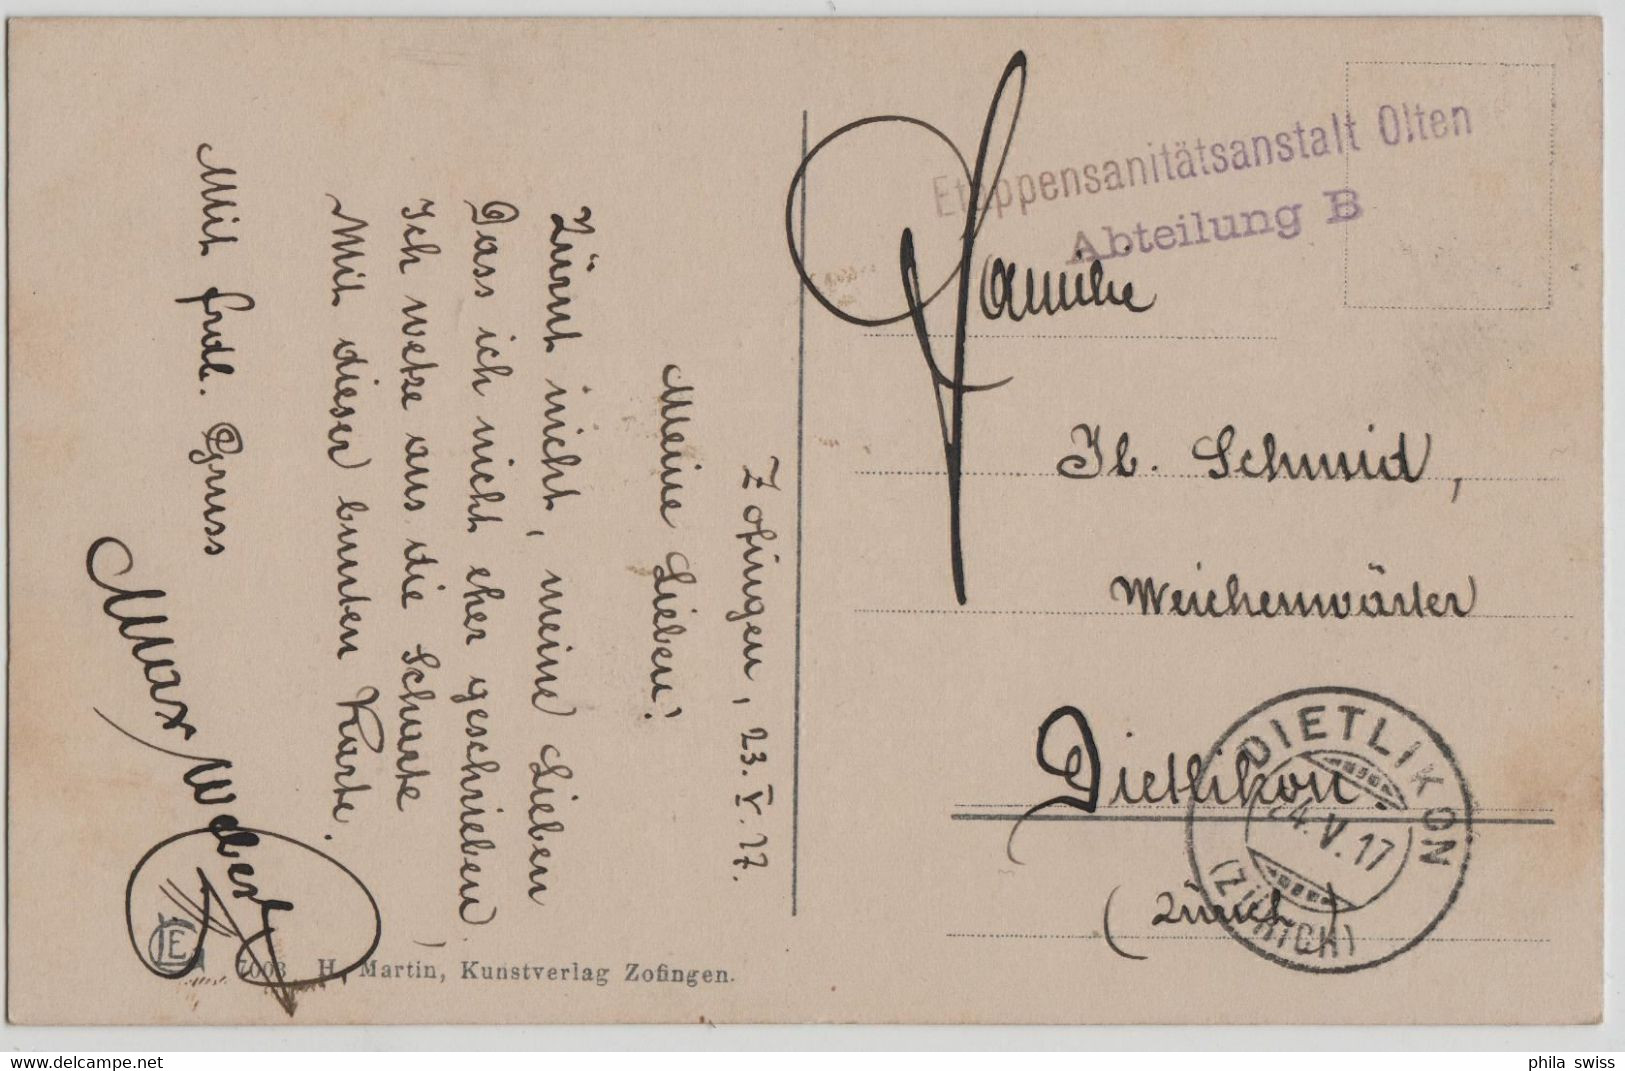 Zofingen, 23. V. 17.
Meine Lieben!
Zürnt nicht, meine Lieben
Dass ich nicht eher geschrieben,
Ich wetze aus die Scharte
Mit dieser bunten Karte.
Mit frdl. Gruss
Max Weber
7003 H. Martin, Kunstverlag Zofingen.
Etappensanitätsanstalt Olten
Abteilung B
Familie
Jb. Schmid,
Weichenwärter
Dietlikon
(Zürich)
DIETLIKON
24.V.17
(ZÜRICH)
www.delcampe.net
phila_swiss